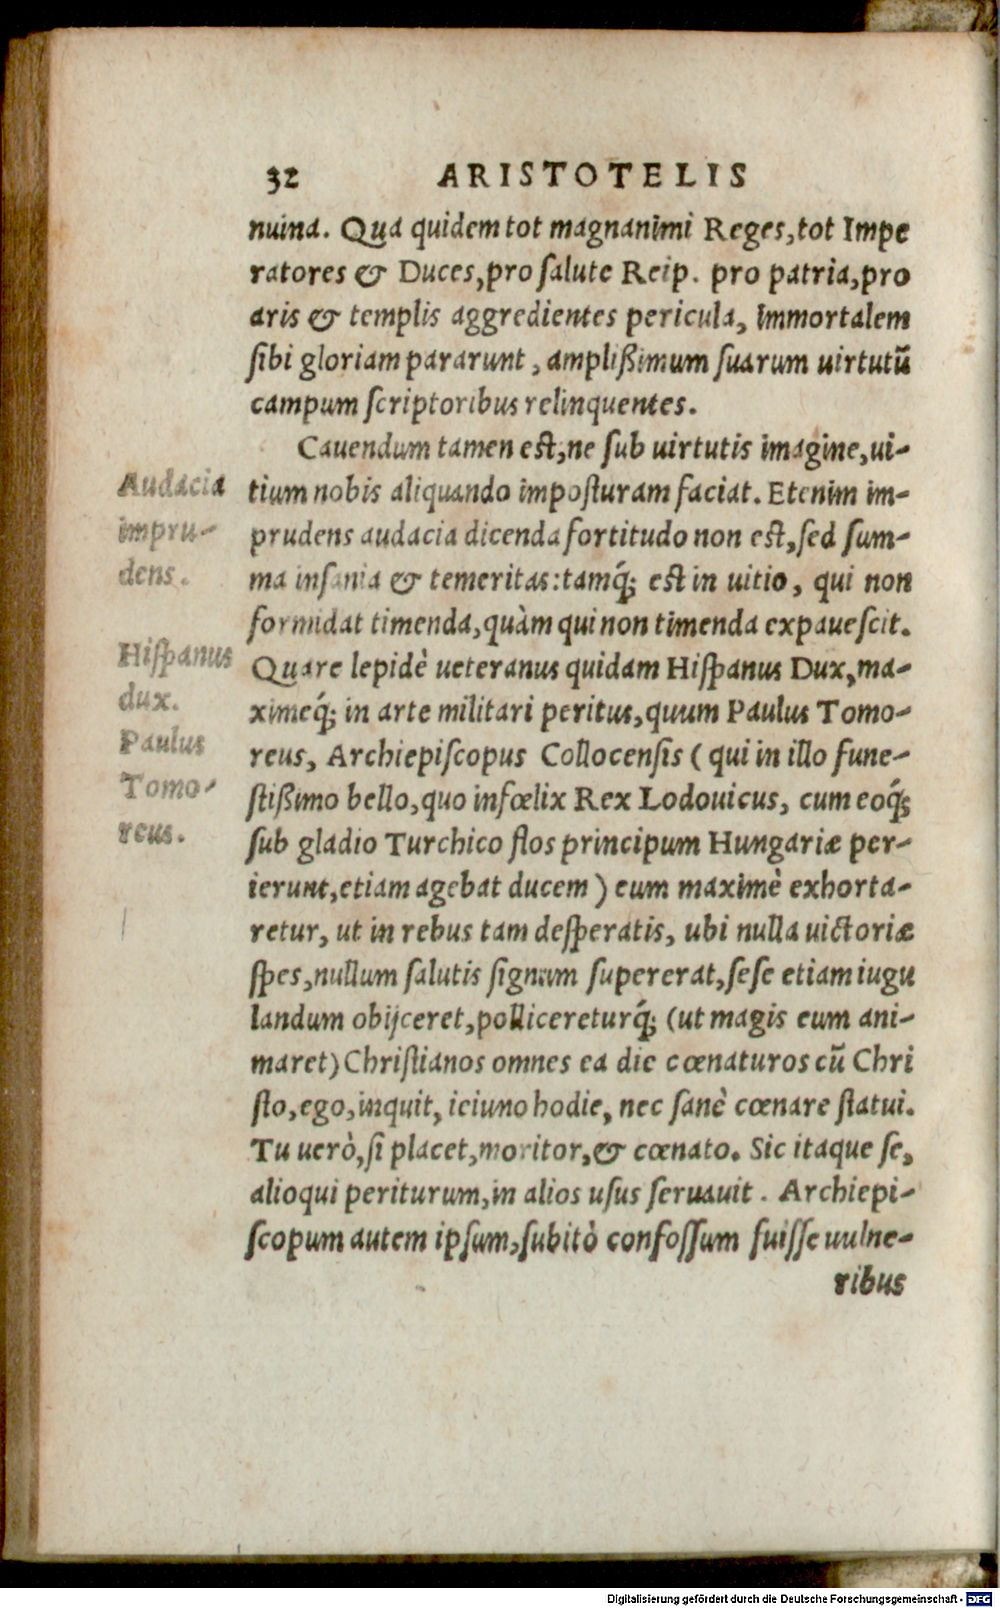 32 ARISTOTELIS
nuina. Qua quidem tot magnanimi Reges, tot Impe
ratores & Duces, pro ſalute Reip. pro patria, pro
aris & templis aggredientes pericula, immortalem
ſibi gloriam pararunt, amplißimum ſuarum uirtutū
campum ſcriptoribus relinquentes.
Cauendum tamen eſt, ne ſub uirtutis imagine, ui-
Audacia
tium nobis aliquando impoſturam faciat. Etenim im-
impru-
prudens audacia dicenda fortitudo non eſt, ſed ſum-
dens.
ma inſania & temeritas: tamq́; eſt in uitio, qui non
formidat timenda, quàm qui non timenda expaueſcit.
Hiſpanus
Quare lepidè ueteranus quidam Hiſpanus Dux, ma-
dux.
ximeq́; in arte militari peritus, quum Paulus Tomo-
Paulus
reus, Archiepiſcopus Collocenſis (qui in illo fune-
Tomo-
ſtißimo bello, quo infœlix Rex Lodouicus, cum eoq́;
reus.
ſub gladio Turchico flos principum Hungariæ per-
ierunt, etiam agebat ducem) eum maximè exhorta-
retur, ut in rebus tam deſperatis, ubi nulla uictoriæ
ſpes, nullum ſalutis ſignum ſupererat, ſeſe etiam iugu
landum obijceret, polliceretur q́; (ut magis eum ani-
maret) Chriſtianos omnes ea die cœnaturos cū Chri
ſto, ego, inquit, ieiuno hodie, nec ſanè cœnare ſtatui.
Tu uerò, ſi placet, moritor, & cœnato. Sic itaque ſe,
alioqui periturum, in alios uſus ſeruauit. Archiepi-
ſcopum autem ipſum, ſubitò confoſſum fuiſſe uulne-
ribus
Digitalisierung gefördert durch die Deutsche Forschungsgemeinschaft - DFG